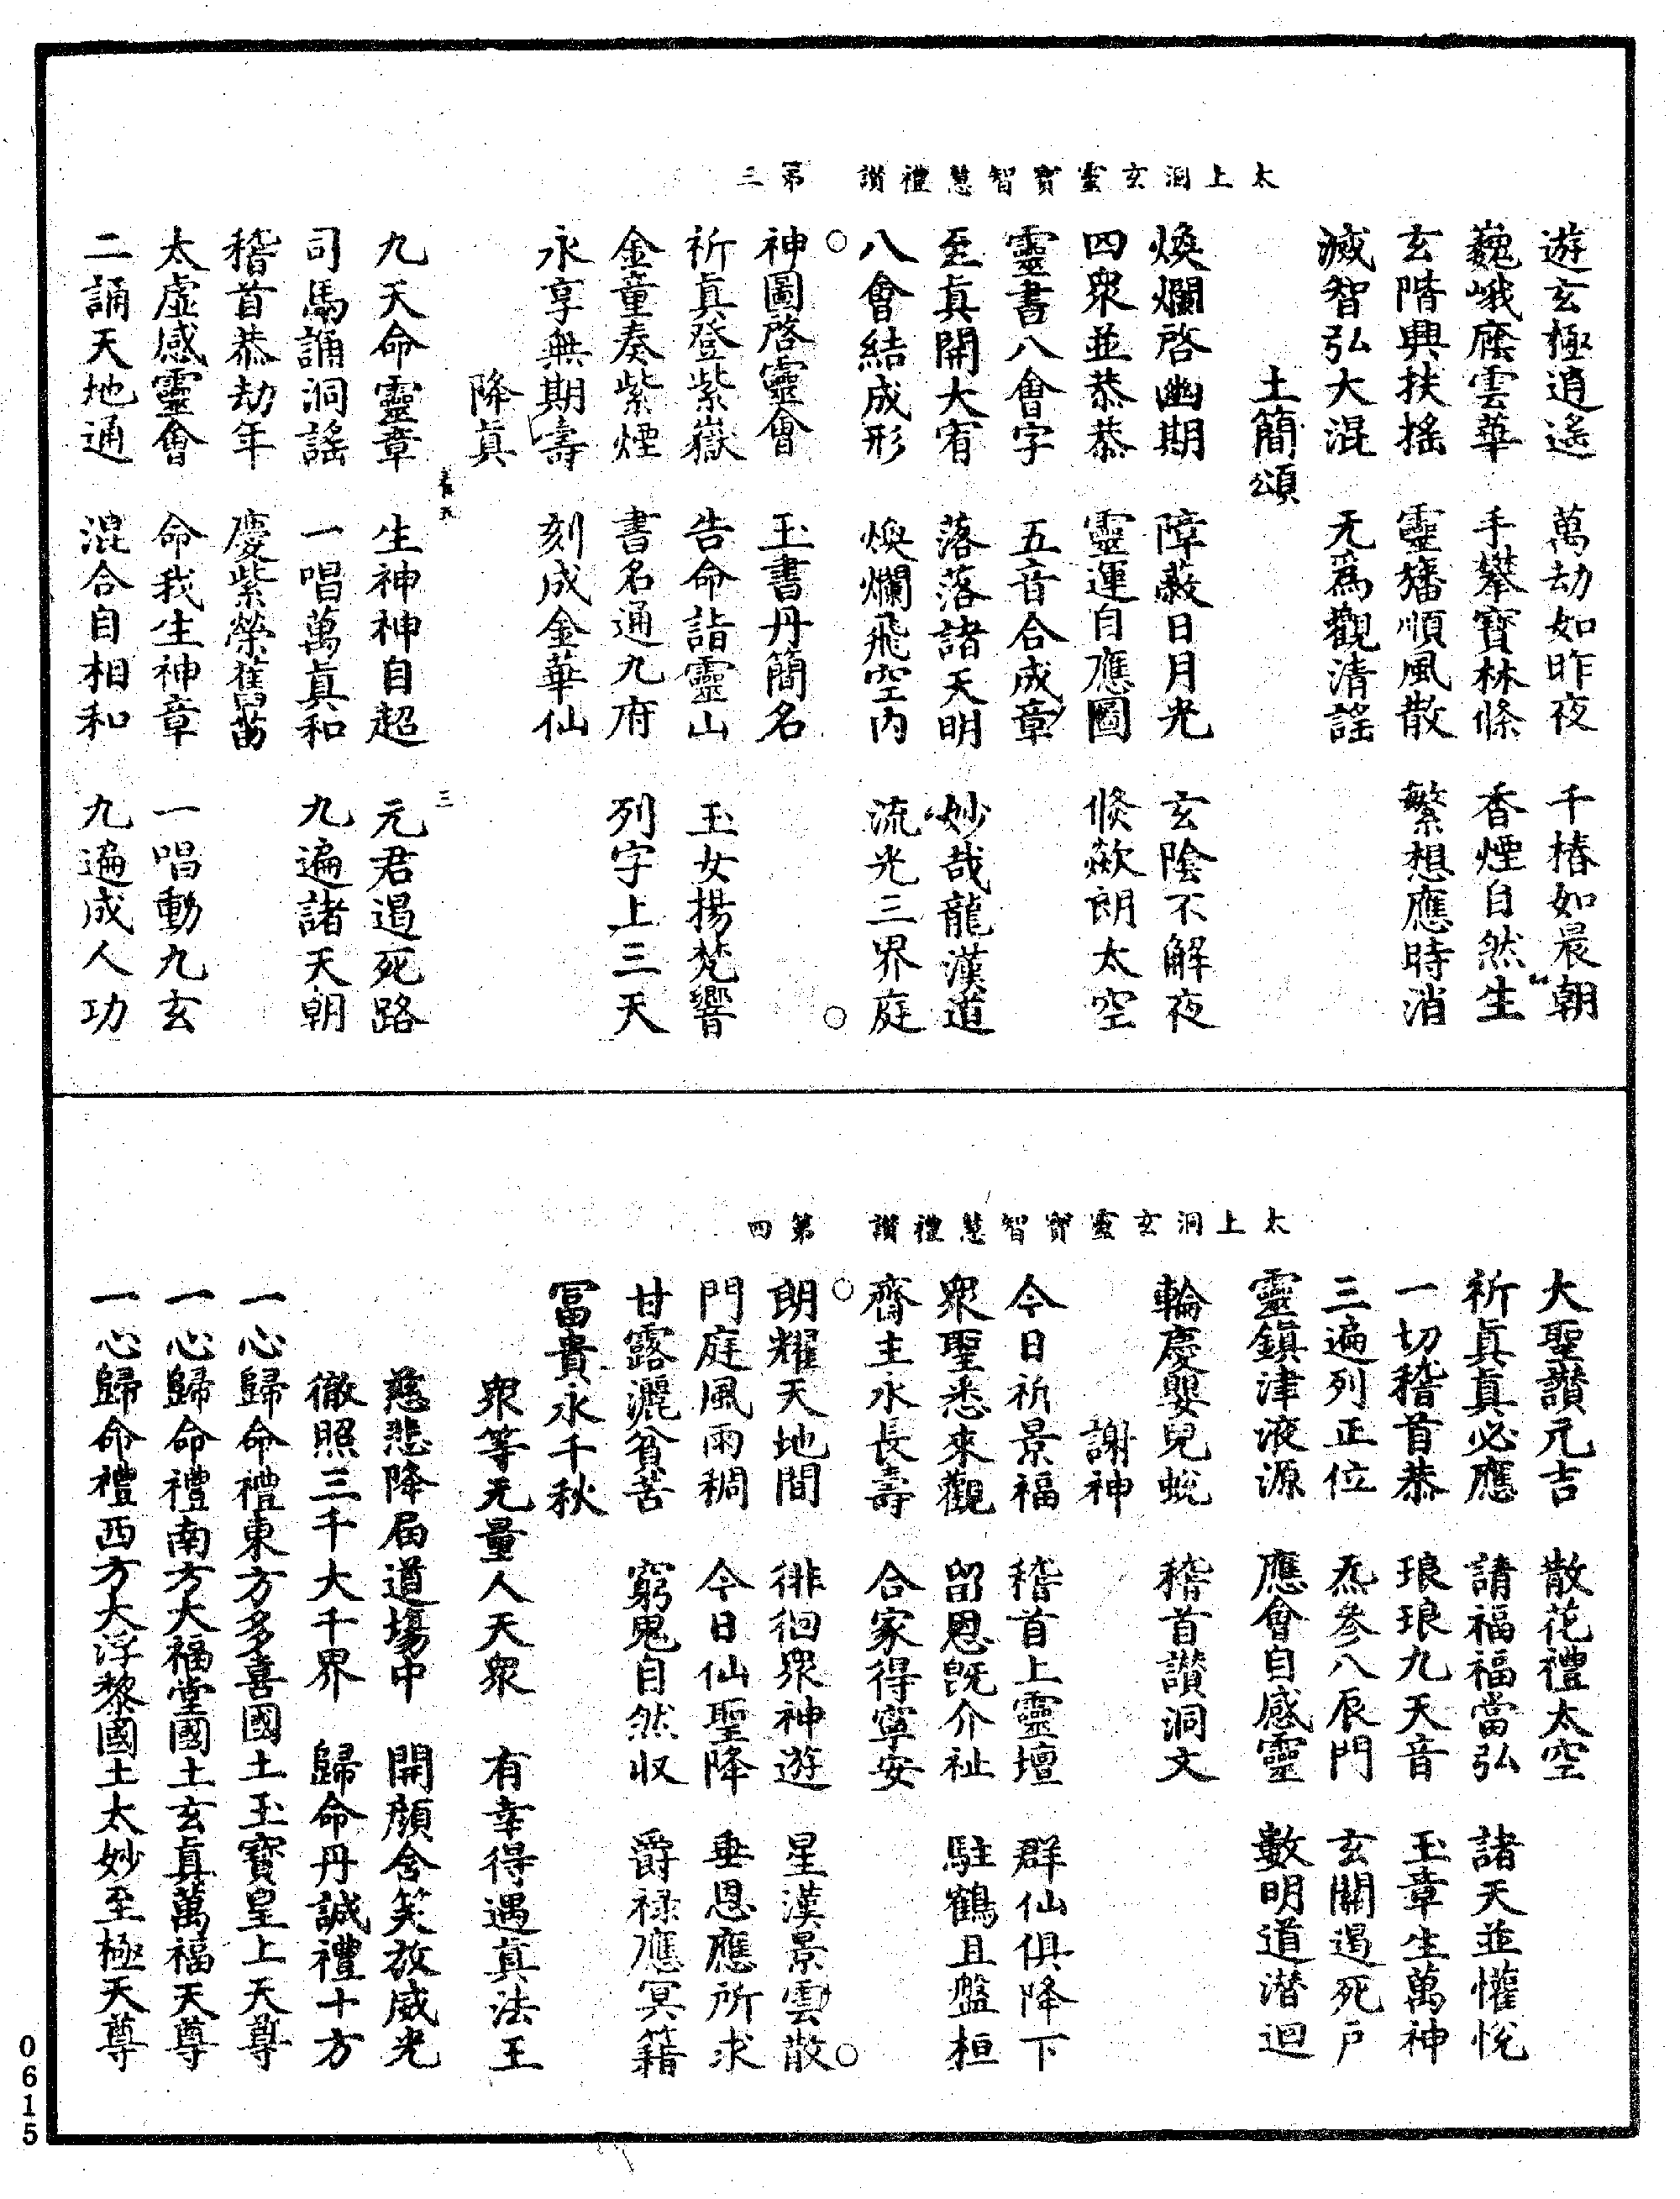 太上洞玄靈寶智慧禮讃　第三
遊玄極逍遥　萬劫如昨夜　千椿如晨朝
巍峨䕃雲華　手攀寶林條　香煙自然生
玄階興扶摇　靈旛順風散　繁想應時消
滅智弘大混　无爲觀清謡
土簡頌
煥爛啓幽期　障蔽日月光　玄陰不解夜
四衆並恭恭　靈運自應圖　倐歘朗太空
靈書八會字　五音合成章
至眞開大宥　落落諸天明　妙哉龍漢道
八會結成形　煥爛飛空内　流光三界庭
○　○
神圖啓靈會　玉書丹簡名
祈眞登紫嶽　告命詣靈山　玉女揚梵響
金童奏紫煙　書名通九府　列字上三天
永享無期壽　刻成金華仙
降眞
三
九天命靈章　生神神自超　元君遏死路
司馬誦洞謡　一唱萬眞和　九遍諸天朝
稽首恭劫年　慶紫榮舊苗
太虚感靈會　命我生神章　一唱動九玄
二誦天地通　混合自相和　九遍成人功
太上洞玄靈寶智慧禮讃　第四
大聖讃元吉　散花禮太空
祈眞眞必應　請福福當弘　諸天並懽悦
一切稽首恭　琅琅九天音　玉章生萬神
三遍列正位　炁參八辰門　玄關遏死户
靈鎮津液源　應會自感靈　數明道潜迴
輪慶嬰兒蜕　稽首讃洞文
謝神
今日祈景福　稽首上靈壇　群仙俱降下
衆聖悉來觀　留恩旣介祉　駐鶴且盤桓
齋主永長壽　合家得寧安
○　○
朗耀天地間　徘徊衆神遊　星漢景雲散
門庭風雨稠　今日仙聖降　垂恩應所求
甘露灑貧苦　窮鬼自然収　爵禄應冥籍
冨貴永千秋
衆等无量人天衆　有幸得遇眞法王
慈悲降屆道場中　開顔含笑放威光
徹照三千大千界　歸命丹誠禮十方
一心歸命禮東方多喜國土玉寶皇上天尊
一心歸命禮南方大福堂國土玄眞萬福天尊
一心歸命禮西方大浮黎國土太妙至極天尊
0615